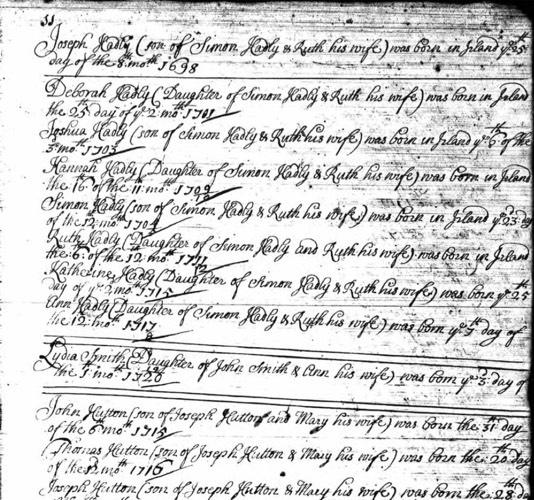 Joseph Hadly (son of Simon Hadly & Ruth his wife) was born in Irland yᵉ 25ᵗʰ
day of the 8 moᵗʰ 1698
Deborah Hadly (Daughter of Simon Hadly & Ruth his wife) was born in Irland
the 25ᵗʰ day of yᵉ 2 moᵗʰ 1701
Joshua Hadly (son of Simon Hadly & Ruth his wife) was born in Irland yᵉ 6ᵗʰ of the
3 moᵗʰ 1703
Hannah Hadly (Daughter of Simon Hadly & Ruth his wife) was born in Irland
the 16 of the 11 moᵗʰ 1709
10
Simon Hadly (son of Simon Hadly & Ruth his wife) was born in Irland yᵉ 23 day
of the 12 moᵗʰ 1704
Ruth Hadly (Daughter of Simon Hadly and Ruth his wife) was born in Irland
the 6 of the 12 moᵗʰ 1711
12
Katherine Hadly (Daughter of Simon Hadly & Ruth his wife) was born yᵉ 25
day of yᵉ 2 moᵗʰ 1715
Ann Hadly (Daughter of Simon Hadly & Ruth his wife) was born yᵉ day of
the 12 moᵗʰ 1717
8
Lydia Smith (Daughter of John Smith & Ann his wife) was born yᵉ 3 day of
the 1 moᵗʰ 1720
John Hutton (son of Joseph Hutton and Mary his wife) was born the 31 day
of the 6 moᵗʰ 1715
Thomas Hutton (son of Joseph Hutton & Mary his wife) was born the 20 day
of the 12 moᵗʰ 1716
Joseph Hutton (son of Joseph Hutton & Mary his wife) was born the 28 day